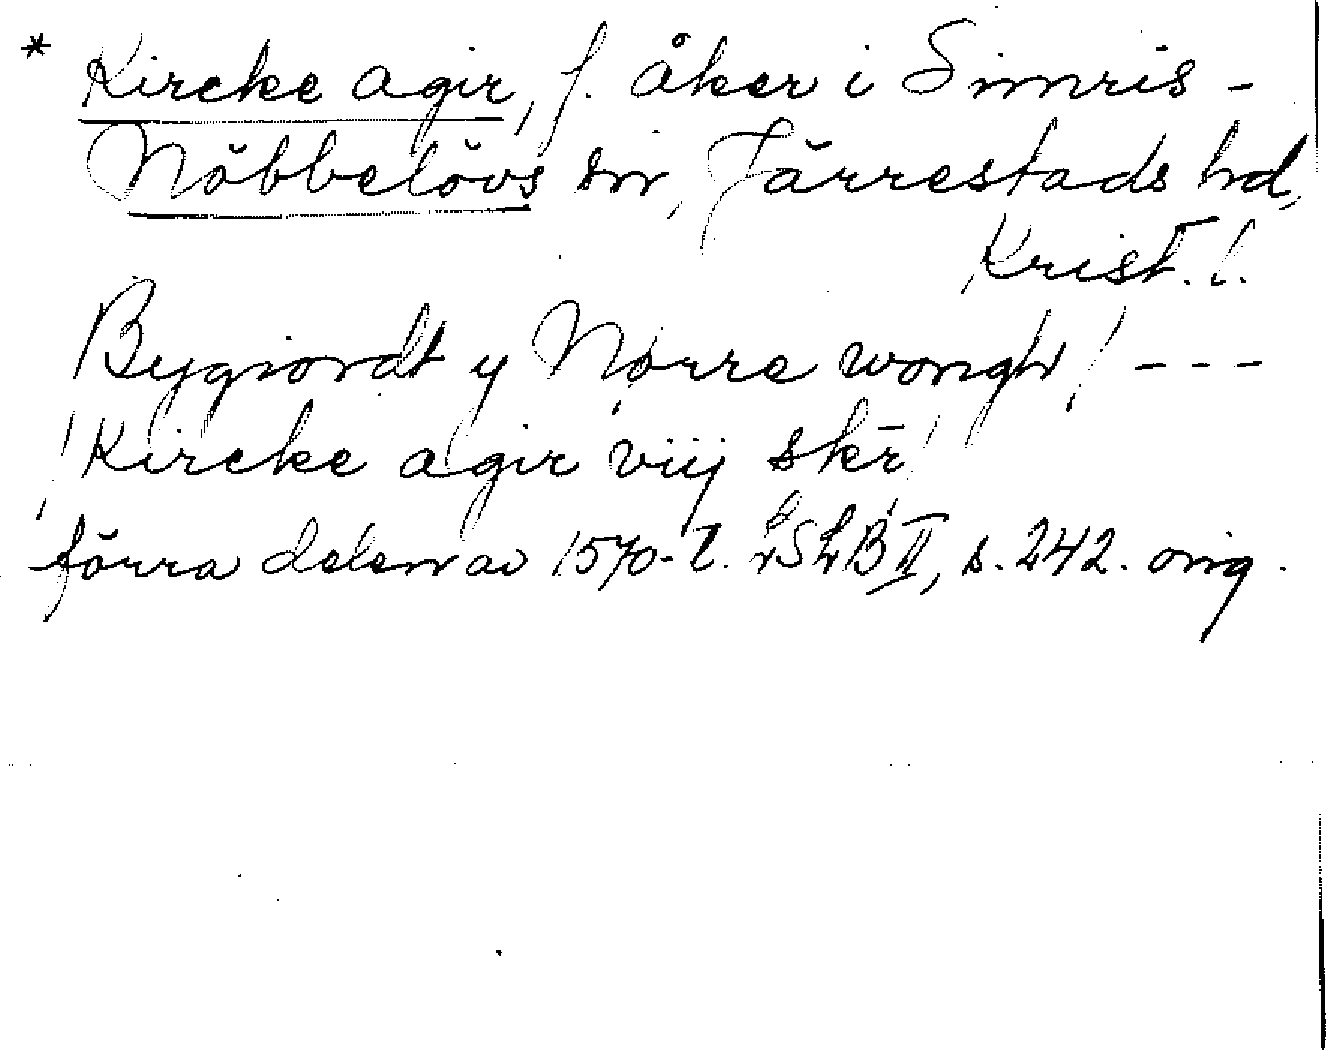 * Kircke agir, f. åker i Simris-
Nöbbelövs sn, Järrestads hd,
Krist. l.
Bygiordt y Nørre wongh / ---
/ Kircke agir viij skr̄ /
förra delen av 1570-t. LSLB II, s. 242. orig.